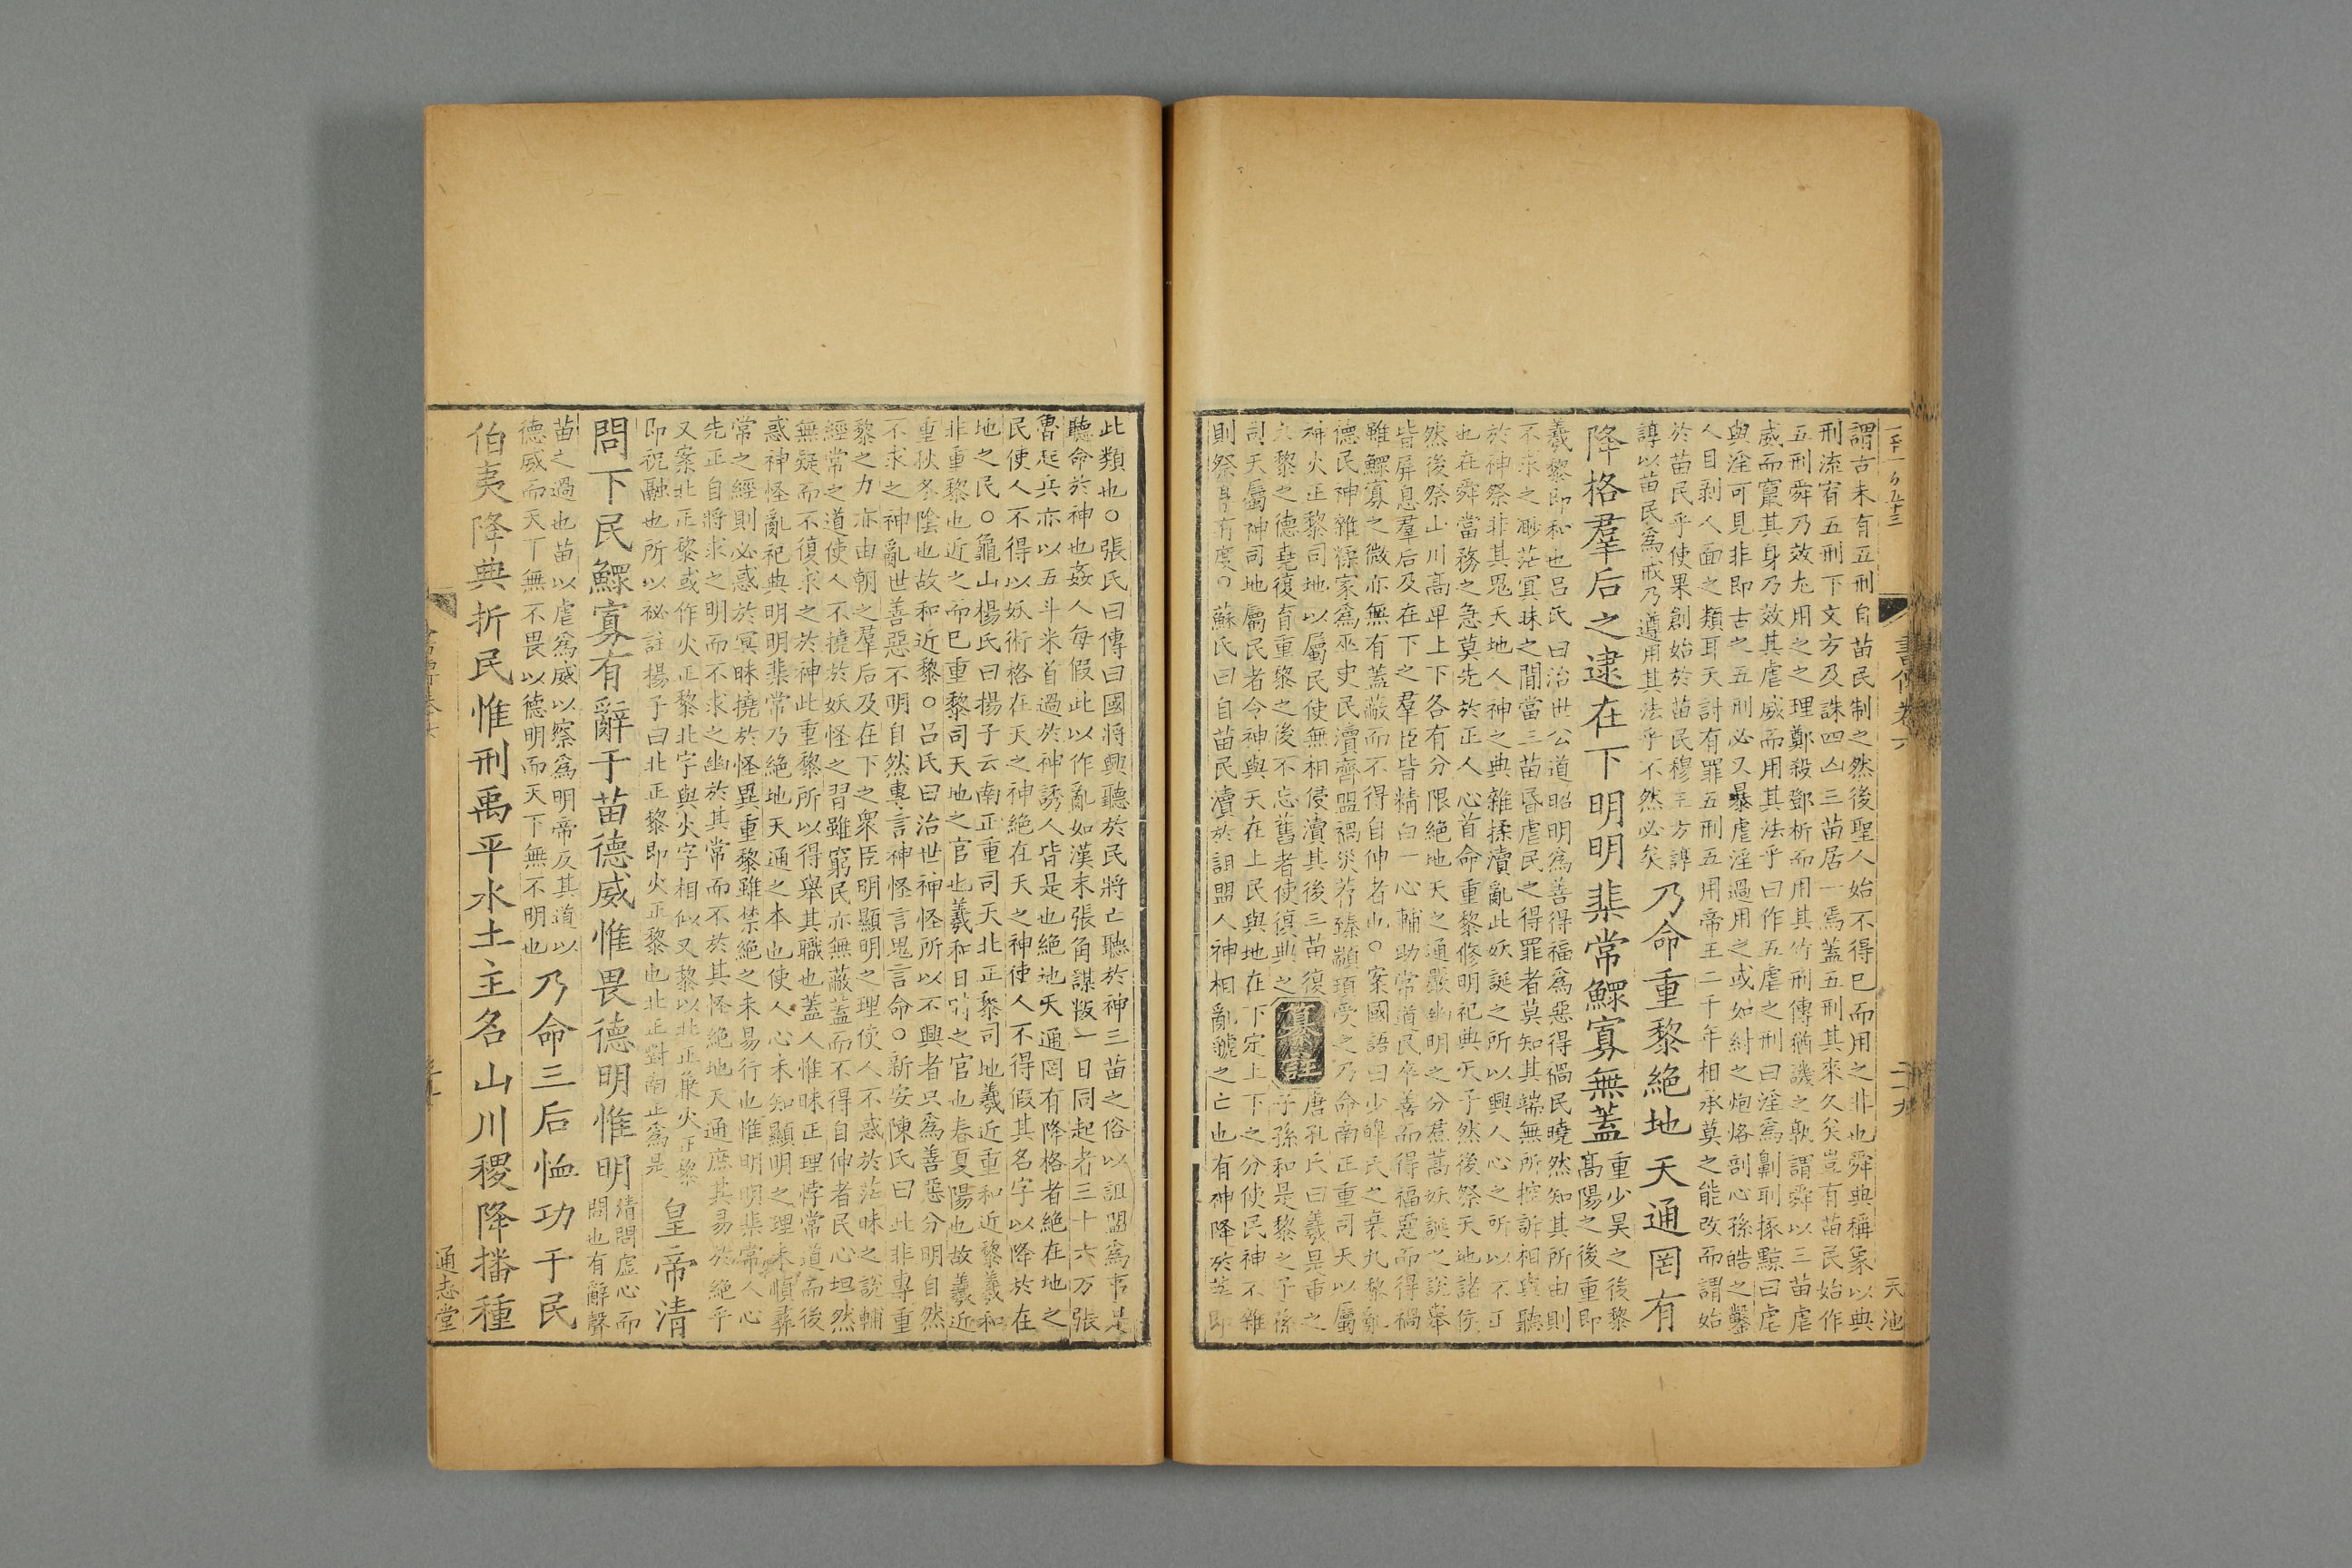 謂古未有五刑自苗民制之然後聖人始不得已而用之非也舜典稱象以典
刑流宥五刑下文方及誅四凶三苗居一焉蓋五刑其來久矣豈有苗民始作
五刑舜乃效尤用之之理鄭殺鄧析而用其竹刑傳猶譏之孰謂舜以三苗虐
威而竄其身乃效其虐威而用其法乎曰作五虐之刑曰淫爲劓刵椓黥曰虐
與淫可見非即古之五刑必又暴虐淫過用之或如紂之炮烙剖心孫皓之鑿
人目剥人面之類耳天討有罪五刑五用帝王二千年相承莫之能改而謂始
於苗民乎使果創始於苗民穆王方諄
諄以苗民爲戒乃遵用其法乎不然必矣
乃命重黎絶地天通罔有
降格羣后之逮在下明明棐常鰥寡無蓋
重少昊之後黎
髙陽之後重即
羲黎即和也吕氏曰治世公道昭明爲善得福爲惡得禍民曉然知其所由則
不求之渺茫冥昧之間當三苗昏虐民之得罪者莫知其端無所控訴相與聽
於神祭非其鬼天地人神之典雜揉瀆亂此妖誕之所以興人心之所以不正
也在舜當務之急莫先於正人心首命重黎修明祀典天子然後祭天地諸侯
然後祭山川高卑上下各有分限絶地天之通嚴幽明之分焄蒿妖誕之説舉
皆屏息羣后及在下之羣臣皆精白一心輔助常道民卒善而得福惡而得禍
雖鰥寡之微亦無有蓋蔽而不得自伸者也○案國語曰少皡氏之衰九黎亂
德民神雜糅家爲巫史民瀆齊盟禍災荐臻顓頊受之乃命南正重司天以屬
神火正黎司地以屬民使無相侵瀆其後三苗復
九黎之德堯復育重黎之後不忘舊者使復典之
纂註
唐孔氏曰羲是重之
子孫和是黎之子孫
司天屬神司地屬民者令神與天在上民與地在下定上下之分使民神不雜
則祭享有度○蘇氏曰自苗民瀆於詛盟人神相亂虢之亡也有神降於莘即
書傳卷六
二十九
天池
此類也○張氏曰傳曰國將興聽於民將亡聽於神三苗之俗以詛盟爲事是
聽命於神也姦人每假此以作亂如漢末張角謀叛一日同起者三十六万張
魯起兵亦以五斗米首過於神誘人皆是也絶地天通罔有降格者絶在地之
民使人不得以妖術格在天之神絶在天之神使人不得假其名字以降於在
地之民○龜山楊氏曰揚子云南正重司天北正黎司地羲近重和近黎羲和
非重黎也近之而已重黎司天地之官也羲和日官之官也春夏陽也故羲近
重秋冬陰也故和近黎○吕氏曰治世神怪所以不興者只爲善惡分明自然
不求之神亂世善惡不明自然專言神怪言鬼言命○新安陳氏曰此非專重
黎之力亦由朝之羣后及在下之衆臣明顯明之理使人不惑於茫昧之説輔
經常之道使人不撓於妖怪之習雖窮民亦無蔽蓋而不得自伸者民心坦然
無疑而不復求之於神此重黎所以得舉其職也蓋人惟昧正理悖常道而後
惑神怪亂祀典明明棐常乃絶地天通之本也使人心未知顯明之理未愼彝
常之經則必惑於冥昧撓於怪異重黎雖禁絶之未易行也惟明明棐常人心
先正自將求之明而不求之幽於其常而不於其怪絶地天通庶其易於絶乎
又案北正黎或作火正黎北字與火字相似又黎以北正兼火正黎
即祝融也所以祕註揚子曰北正黎即火正黎也北正對南正爲是
皇帝清
問下民鰥寡有辭于苗德威惟畏德明惟明
清問虛心而
問也有辭聲
苗之過也苗以虐爲威以察爲明帝反其道以
德威而天下無不畏以德明而天下無不明也
乃命三后恤功于民
伯夷降典折民惟刑禹平水土主名山川稷降播種
通志堂